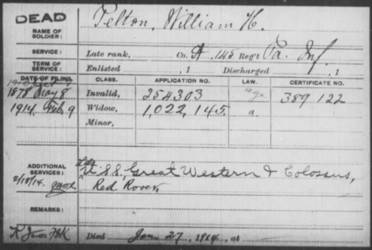 DEAD
NAME OF SOLDIER: Pelton, William H.
SERVICE: Late rank, Co. A 145 Reg't Pa. Inf
TERM OF SERVICE: Enlisted , 1 Discharged , 1
DATE OF FILING. CLASS. APPLICATION NO. LAW. CERTIFICATE NO.
1878 May 8 Invalid, 254303 389 122
1914 Feb. 9 Widow, 1,022,145 a.
Minor,
ADDITIONAL SERVICES: U.S.S. Great Western & Colossus,
Red Rover
REMARKS:
Died Jan 27, 1914, at